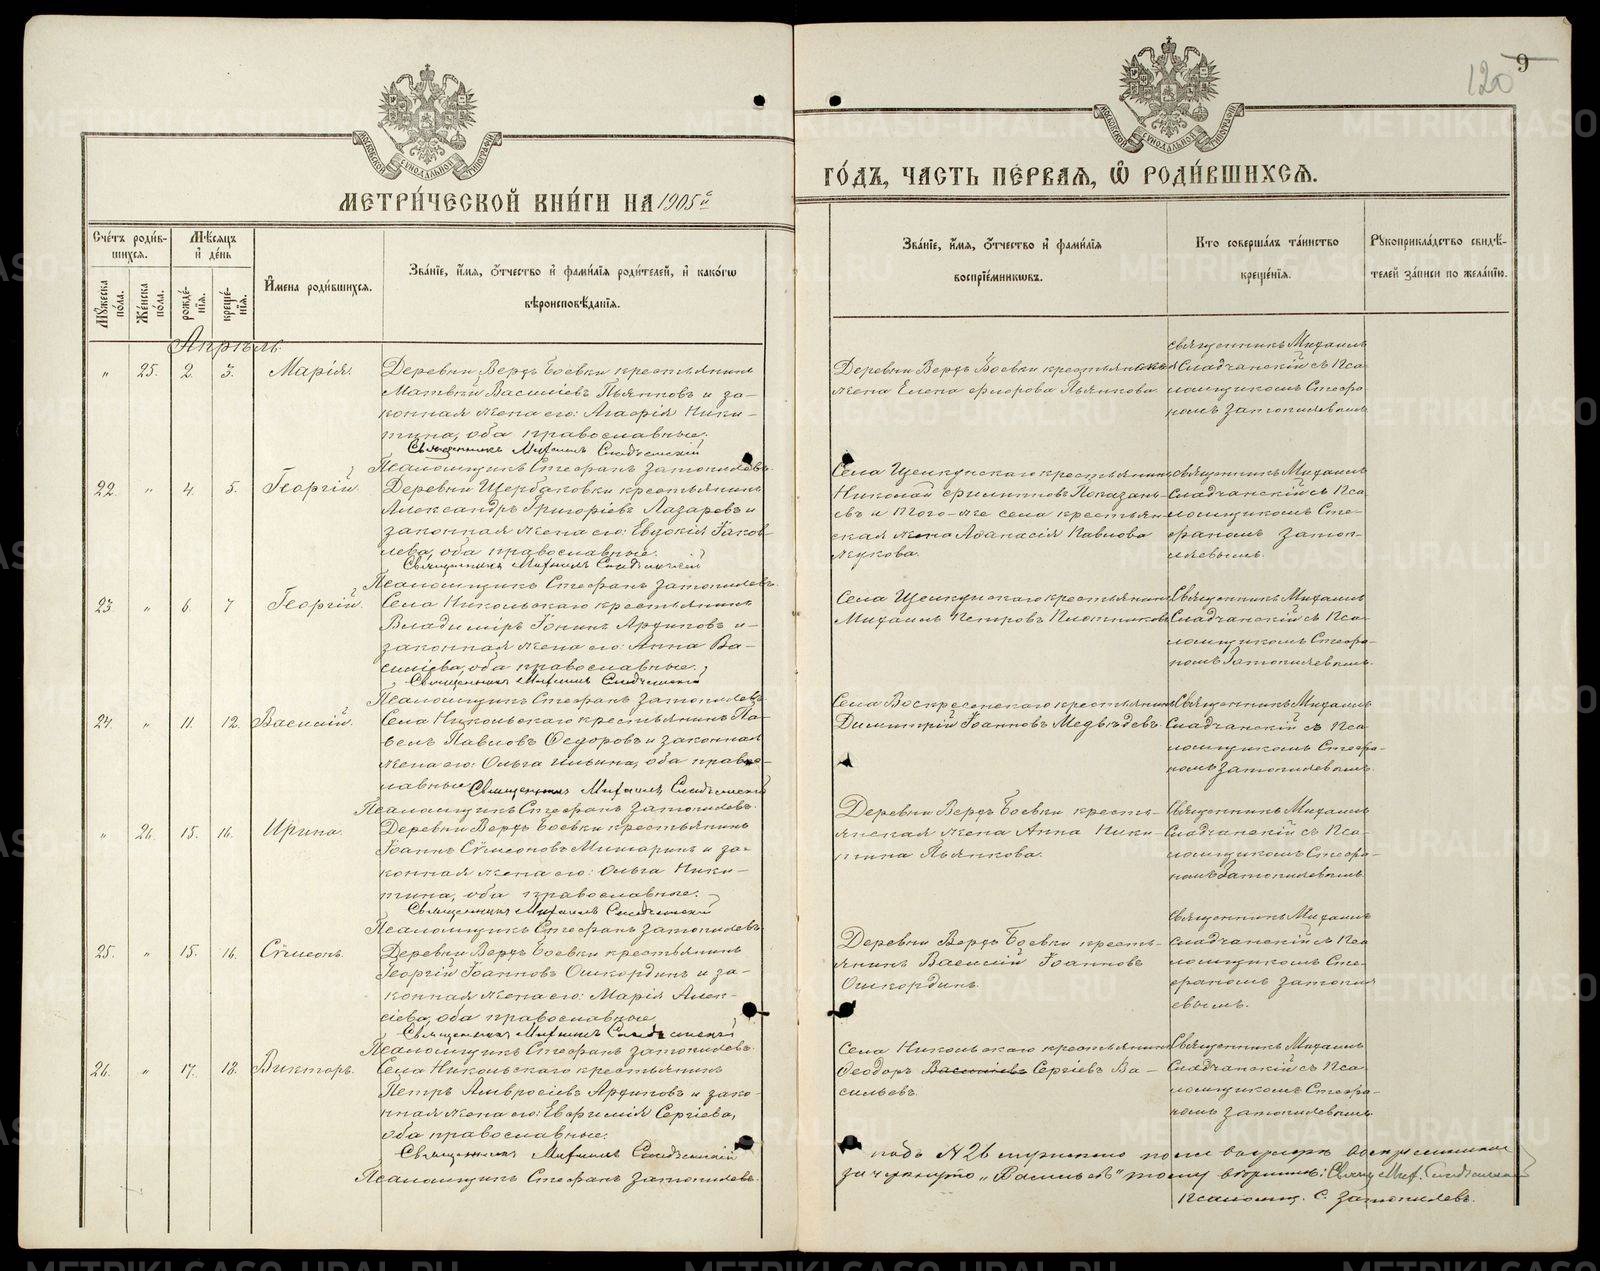 120
9
МЕТРИ́ЧЕСКОЙ КНИ́ГИ НА 1905 й
ГО́ДЪ, ЧАСТЬ ПЕ́РВАЯ, Ѽ РОДИ́ВШИХСЯ.
Счётъ роди́в-
шихся.
Мѣсяцъ
и де́нь
Мужеска по́ла.
Же́нска по́ла.
рожде́-
нія.
креще́-
нія.
Имена роди́вшихся.
Зва́ніе, и́мя, о́тчество и фами́лія роди́телей, и како́гѡ
вѣроисповѣ́данія.
Зва́ніе, и́мя, о́тчество и фами́лія
воспріе́мниковъ.
Кто соверша́лъ та́инство
креще́нія.
Рукоприкла́дство свидѣ́-
телей за́писи по жела́нію.
Апрѣль.
" 25. 2. 3. Марія.
Деревни Верхъ Боевки крестьянинъ
Матвѣй Василіевъ Пьянковъ и за-
конная жена его: Агафія Ники-
тина, оба православные.
Священникъ Михаилъ
Псаломщикъ Стефанъ Затопляевъ.
Деревни Верхъ Боевки крестьянская
жена Елена Флорова Пьянкова
Священникъ Михаилъ
Сладчанскій съ Пса-
ломщикомъ Стефа-
номъ Затопляевымъ
22. " 4. 5. Георгій.
Деревни Щербаковки крестьянинъ
Александръ Григоріевъ Лазаревъ и
законная жена его: Евдокія Іаков-
лева, оба православные.
Священникъ Михаилъ
Псаломщикъ Стефанъ Затопляевъ.
Села Щелкунскаго крестьянинъ
Николай Филипповъ Показань-
евъ и того-же села крестьян-
ская жена Афанасія Павлова
Жукова.
Священникъ Михаилъ
Сладчанскій съ Пса-
ломщикомъ Сте-
фаномъ Затоп-
ляевымъ.
23. " 6. 7 Георгій.
Села Никольскаго крестьянинъ
Владиміръ Іонинъ Арфиковъ и
законная жена его: Анна Ва-
силіева, оба православные.
Священникъ Михаилъ
Псаломщикъ Стефанъ Затопляевъ
Села Щелкунскаго крестьянинъ
Михаилъ Петровъ Плотниковъ
Священникъ Михаилъ
Сладчанскій съ Пса-
ломщикомъ Стефа-
номъ Затопляевымъ.
24 " 11. 12. Василій.
Села Никольскаго крестьянинъ Па-
велъ Павловъ Ѳедоровъ и законная
жена его: Ольга Ильина, оба право-
славные Священникъ Михаилъ
Псаломщикъ Стефанъ Затопляевъ.
Села Воскресенскаго крестьянинъ
Димитрій Іоанновъ Медвѣдевъ.
Священникъ Михаилъ
Сладчанскій съ Пса-
ломщикомъ Стефа-
номъ Затопляевымъ.
" 26. 15. 16. Ирина.
Деревни Верхъ Боевки крестьянинъ
Іоаннъ Сѵмеоновъ Мишаринъ и за-
конная жена его: Ольга Ники-
тина, оба православные.
Священникъ Михаилъ
Псаломщикъ Стефанъ Затопляевъ.
Деревни Верхъ Боевки кресть-
янская жена Анна Ники-
тина Пьянкова.
Священникъ Михаилъ
Сладчанскій съ Пса-
ломщикомъ Стефа-
номъ Затопляевымъ
25. " 15. 16. Сѵмеонъ.
Деревни Верхъ Боевки крестьянинъ
Георгій Іоанновъ Ошкординъ и за-
конная жена его: Марія Алек-
сіева, оба православные
Священникъ Михаилъ
Псаломщикъ Стефанъ Затопляевъ.
Деревни Верхъ Боевки кресть-
янинъ Василій Іоанновъ
Ошкординъ.
Священникъ Михаилъ
Сладчанскій съ Пса-
ломщикомъ Сте-
фаномъ Затопля
евымъ.
26. " 17. 18. Викторъ.
Села Никольскаго крестьянинъ
Петръ Амвросіевъ Арфиковъ и зако-
нная жена его: Евфимія Сергіева,
оба православные.
Священникъ Михаилъ
Псаломщикъ Стефанъ Затопляевъ.
Села Никольскаго крестьянинъ
Ѳеодоръ Василіевъ Сергіевъ Ва-
сильевъ.
Священникъ Михаилъ
Сладчанскій съ Пса-
ломщикомъ Стефа-
номъ Затопляевымъ
подъ № 26 мужеска пола
зачеркнуто „Васильевъ" тому вѣримъ: Свящ. Мих.
Псаломщ. С. Затопляевъ.
METRIKI.GASO-URAL.RU